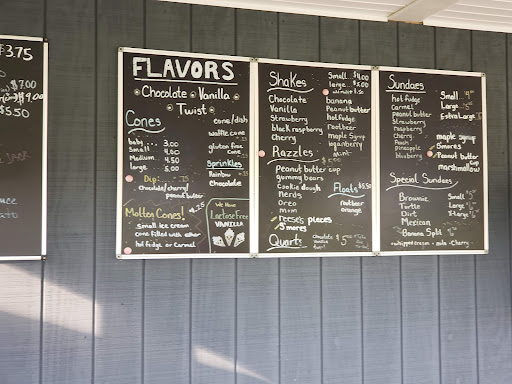 $3.75
$7.00
$9.00
$5.50
FLAVORS
Chocolate Vanilla
Twist
Cones
baby 3.00
Small 4.00
Medium 4.50
large 5.00
Dip: .75
chocolate/cherry/
peanut butter
Molten Cones! 4.75
Small ice cream
cone filled with either
hot fudge or Carmel
cone/dish
waffle cone
gluten free
cone
Sprinkles
Rainbow
chocolate
We Have
Lactose Free
VANILLA
Shakes
Small $4.00
large $5.00
Chocolate
Vanilla
Strawberry
black raspberry
Cherry
banana
Peanut butter
hot fudge
rootbeer
maple syrup
loganberry
mint
Razzles
Peanut butter cup
gummy bears
Cookie dough
nerds
Oreo
m+m
reese's pieces
S'mores
Floats $5.50
rootbeer
orange
Quarts
Chocolate
Vanilla
twist
Sundaes
hot fudge
Carmel
peanut butter
Strawberry
raspberry
cherry
Peach
pineapple
blueberry
Small
Large
Extra Large
maple syrup
S'mores
Peanut butter
cup
marshmallow
Special Sundaes
Brownie
Turtle
Dirt
Mexican
Banana Split
Small
Large
X-large
whipped cream - nuts - Cherry